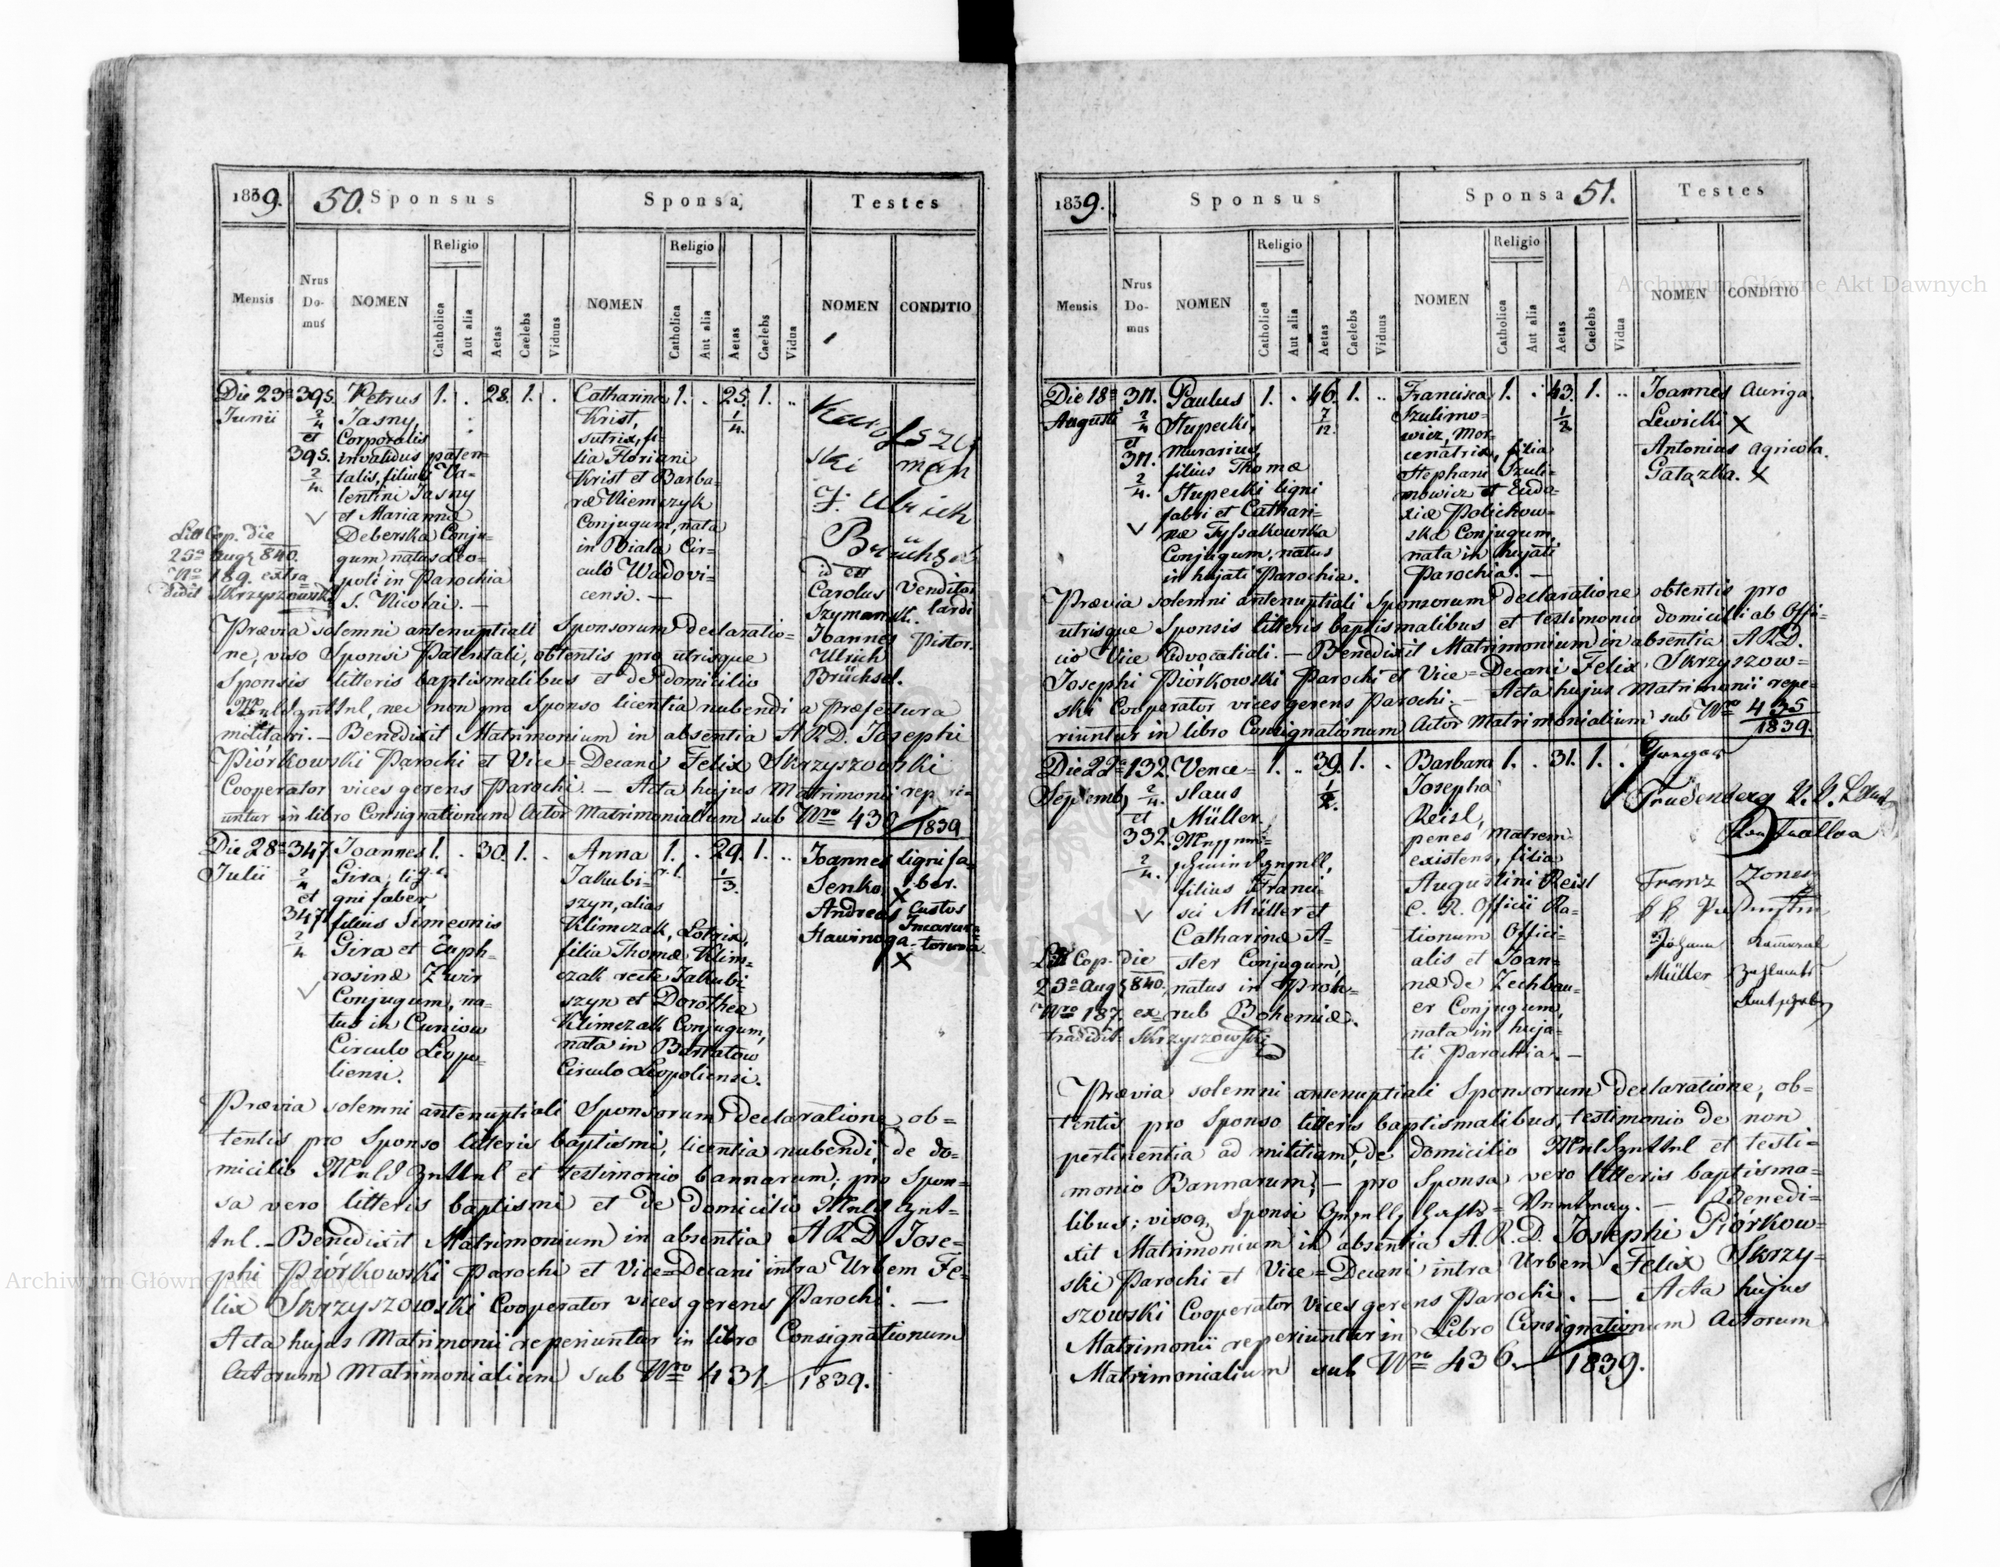 1839.
50. Sponsus
Sponsa
Testes
Mensis
Nrus Do- mus
NOMEN
Religio
Catholica
Aut alia
Aetas
Caelebs
Viduus
NOMEN
Religio
Catholica
Aut alia
Aetas
Caelebs
Vidua
NOMEN
CONDITIO
Die 23a
Junii
395.
2/4
et
395.
2/4.
Petrus
Jasny,
Corporalis
invalidus paten-
talis, filius Va-
lentini Jasny
et Marianna
Deberska Conju-
gum, natus Leo-
poli in Parochia
S. Nicolai. —
1. . 28. 1. .
Catharina
Krist,
sutrix, fi-
lia Floriani
Krist et Barba-
ræ Niemczyk
Conjugum, nata
in Biala Cir-
culo Wadovi-
censi. —
1. . 25. 1. ..
1/4.
ski man
J: Ulrich
id est
Carolus Venditor
Szymansk. lardi
Joannes Pistor.
Ulrich
Brüchsel.
Cop. die
25a Aug 840.
Nro 189. extra-
didit Skrzyszowski
Prævia solemni antenuptiali Sponsorum declaratio=
ne, viso Sponsi Patentali, obtentis pro utrisque
Sponsis litteris baptismalibus et de domicilio
nec non pro Sponso licentia nubendi a Præfectura
militari. — Benedixit Matrimonium in absentia A R.D. Josephi
Piórkowski Parochi et Vice=Decani Felix Skrzyszowski
Cooperator vices gerens Parochi. — Acta hujus Matrimonii reperi-
untur in libro Consignationum Actor Matrimonialium sub Nro 430/1839
Die 28a
Julii
347.
2/4
et
347.
2/4
Joannes
Gira, li-
gni faber,
filius Simeonis
Gira et Euph-
rosinæ Zwir
Conjugum, na-
tus in Cuniow
Circulo Leopo-
liensi.
1. . 30. 1. .
Anna
Jakubi-
szyn, alias
Klimczak, Lotrix,
filia Thomæ Klim-
czak recte Jakubi-
szyn et Dorothea
Klimczak Conjugum,
nata in Bartatow
Circulo Leopoliensi.
1. . 29. 1. ..
1/3.
Joannes ligni fa-
Senko X ber.
Andreas Custos
Stawinoga Incarce-
torum
X
Prævia solemni antenuptiali Sponsorum declaratione, ob=
tentis pro Sponso litteris baptismi, licentia nubendi, de do=
micilio et testimonio bannarum; pro Spon=
sa vero litteris baptismi et de domicilio
Benedixit Matrimonium in absentia A R D. Jose=
phi Piórkowski Parochi et Vice=Decani intra Urbem Fe=
lix Skrzyszowski Cooperator vices gerens Parochi. —
Acta hujus Matrimonii reperiuntur in libro Consignationum
Actorum Matrimonialium sub Nro 431/1839.
1839.
Sponsus
Sponsa 51.
Testes
Mensis
Nrus Do- mus
NOMEN
Religio
Catholica
Aut alia
Aetas
Caelebs
Viduus
NOMEN
Religio
Catholica
Aut alia
Aetas
Caelebs
Vidua
NOMEN
CONDITIO
Die 18a
Augusti
311.
2/4
et
311.
2/4.
Paulus
Słupecki,
murarius,
filius Thomæ
Słupecki ligni
fabri et Cathari-
næ Tyssakowska
Conjugum, natus
in hujati Parochia.
1. . 46. 1. ..
7/12.
Francisca
Szulimo-
wicz, Mer-
cenatrix, filia
Stephani Szuli-
mowicz et Eudo-
xiæ Polichow-
ska Conjugum,
nata in hujati
Parochia. —
1. . 43. 1. ..
1/2
Joannes Auriga.
Lewicki X
Antonius Agricola.
Gałązka. X
Prævia solemni antenuptiali Sponsorum declaratione obtentis pro
utrisque Sponsis litteris baptismalibus et testimonio domicilii ab Offi-
cio Vice Advocatiali. — Benedixit Matrimonium in absentia A.R.D.
Josephi Piórkowski Parochi et Vice=Decani Felix Skrzyszow=
ski Cooperator vices gerens Parochi. — Acta hujus Matrimonii repe-
riuntur in libro Consignationum Actor Matrimonialium sub Nro 435/1839.
Die 22a
Septemb.
132.
2/4.
et
332.
2/4.
Vence=
slaus
Müller
filius Franci-
sci Müller et
Catharinæ A-
ster Conjugum,
natus in Proh-
rub Bohemiæ.
1. . 39. 1. .
1/2.
Barbara
Josepha
Reisl,
penes matrem
existens, filia
Augustini Reisl
C. R. Officii Ra-
tionum Offici-
alis et Joan-
næ de Zechbau-
er Conjugum,
nata in huja-
ti Parochia. —
1. . 31. 1. .
Franz
Johann
Müller
Cop. die
23a Aug 840.
Nro 187. ex-
tradidit Skrzyszowski
Prævia solemni antenuptiali Sponsorum declaratione, ob=
tentis pro Sponso litteris baptismalibus, testimonio de non
pertinentia ad militiam, de domicilio et testi=
monio Bannarum, — pro Sponsa vero litteris baptisma=
libus; visoq. Sponsi — Benedi=
xit Matrimonium in absentia A.R.D. Josephi Piórkow=
ski Parochi et Vice=Decani intra Urbem Felix Skrzy=
szowski Cooperator vices gerens Parochi. — Acta hujus
Matrimonii reperiuntur in Libro Consignationum Actorum
Matrimonialium sub Nro 436./1839.
Archiwum Główne Akt Dawnych
Archiwum Główne Akt Dawnych